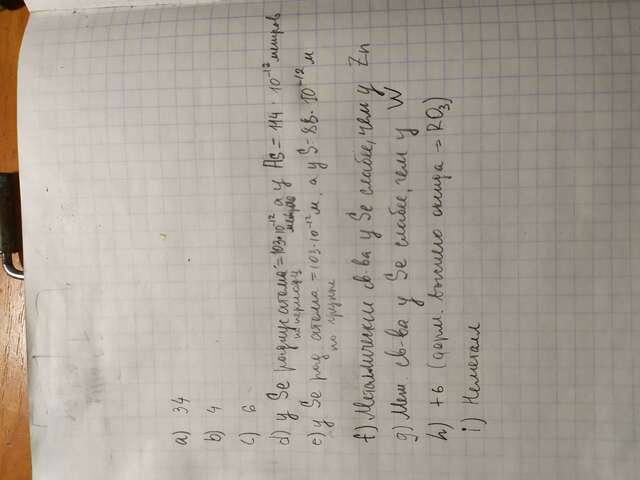 a) 34
b) 4
c) 6
d) у Se радиус атома = 103·10⁻¹² метров а у As = 114 · 10⁻¹² метров
по периоду
e) у Se рад атома = 103·10⁻¹² м, а у S = 88·10⁻¹² м
по группе
f) Металлические св-ва у Se слабее, чем у Zn
g) Мет. св-ва у Se слабее, чем у W
h) +6 (форм. высшего оксида = RO₃)
i) Неметалл